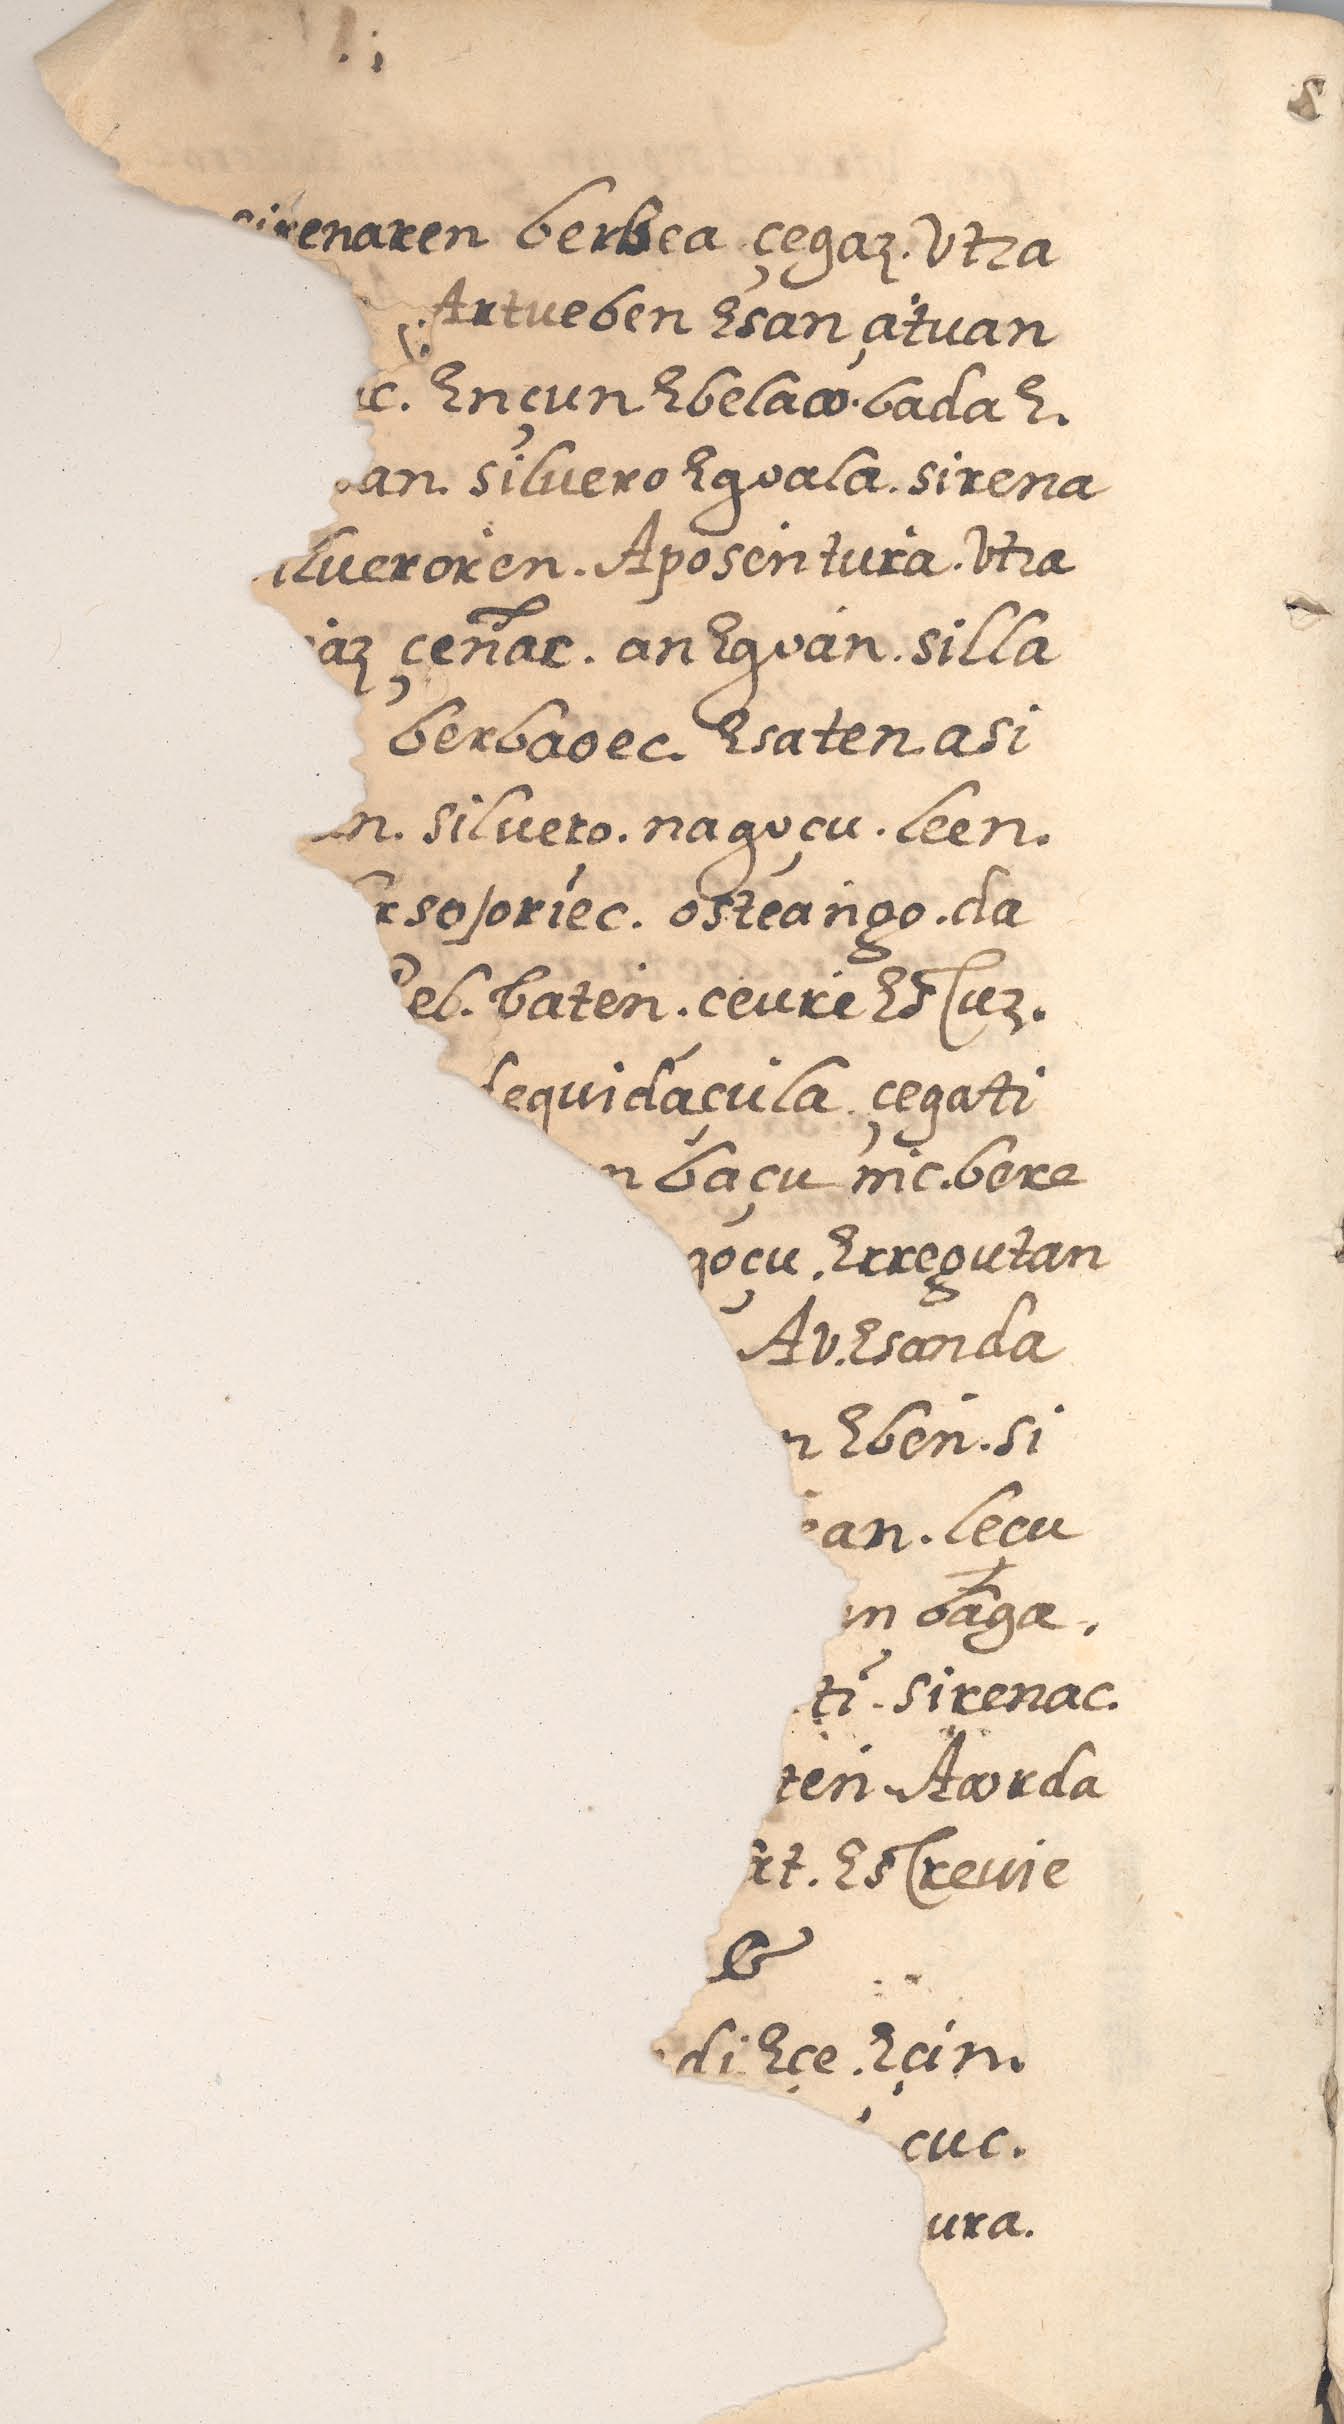 sirenaren berbea çegaz. Vtra
Artueben Esan çituan
c. Ençun Ebelaco. bada E.
an. siluero Egoala. sirena
ilueroren. Aposentura. Vtra
iaz çeñac. an Egoan. silla
berbaoec. Esaten asi
n. siluero. nagoçu. leen.
rso/oriec. osteango. da
el. baten. ceure Escuz.
dequidaçula. çegati
n baçu nic. bere
goçu. Erregutan
Av. Esanda
n Eben. si
an. leçu
n baga.
ti. sirenac.
ten. Acorda
rt. Escreuie
&
di Eçe. Eçin.
cuc.
ura.